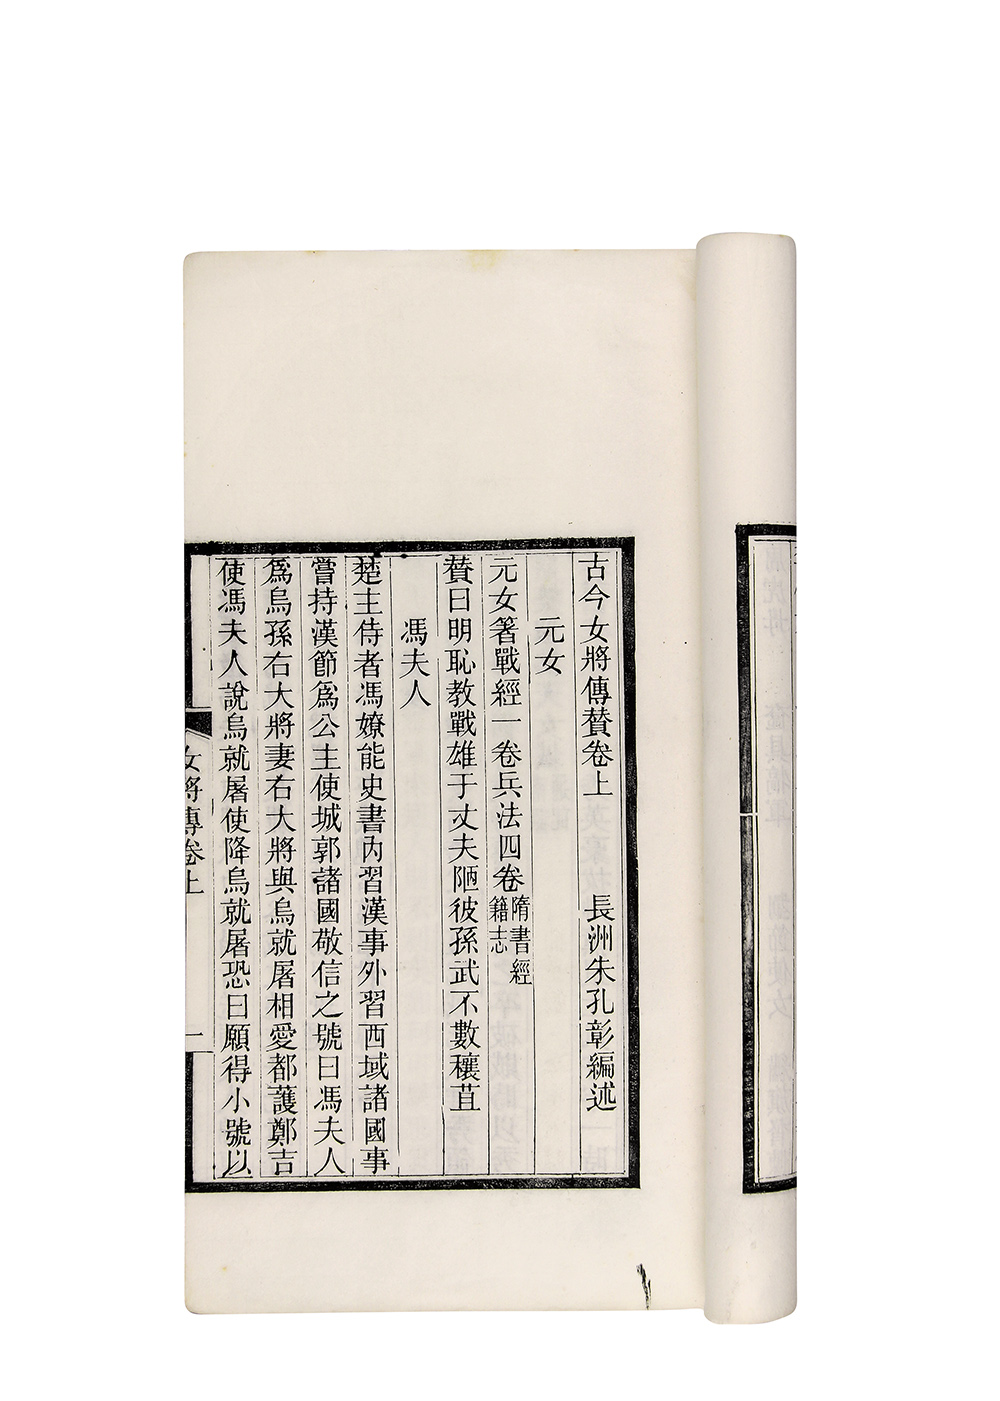 古今女將傳贊卷上　長洲朱孔彰編述
元女
元女箸戰經一卷兵法四卷隋書經籍志
贊曰明恥教戰雄于丈夫陋彼孫武不數穰苴
馮夫人
楚主侍者馮嫽能史書內習漢事外習西域諸國事
嘗持漢節爲公主使城郭諸國敬信之號曰馮夫人
爲烏孫右大將妻右大將與烏就屠相愛都護鄭吉
使馮夫人說烏就屠使降烏就屠恐曰願得小號以
女將傳卷上
一